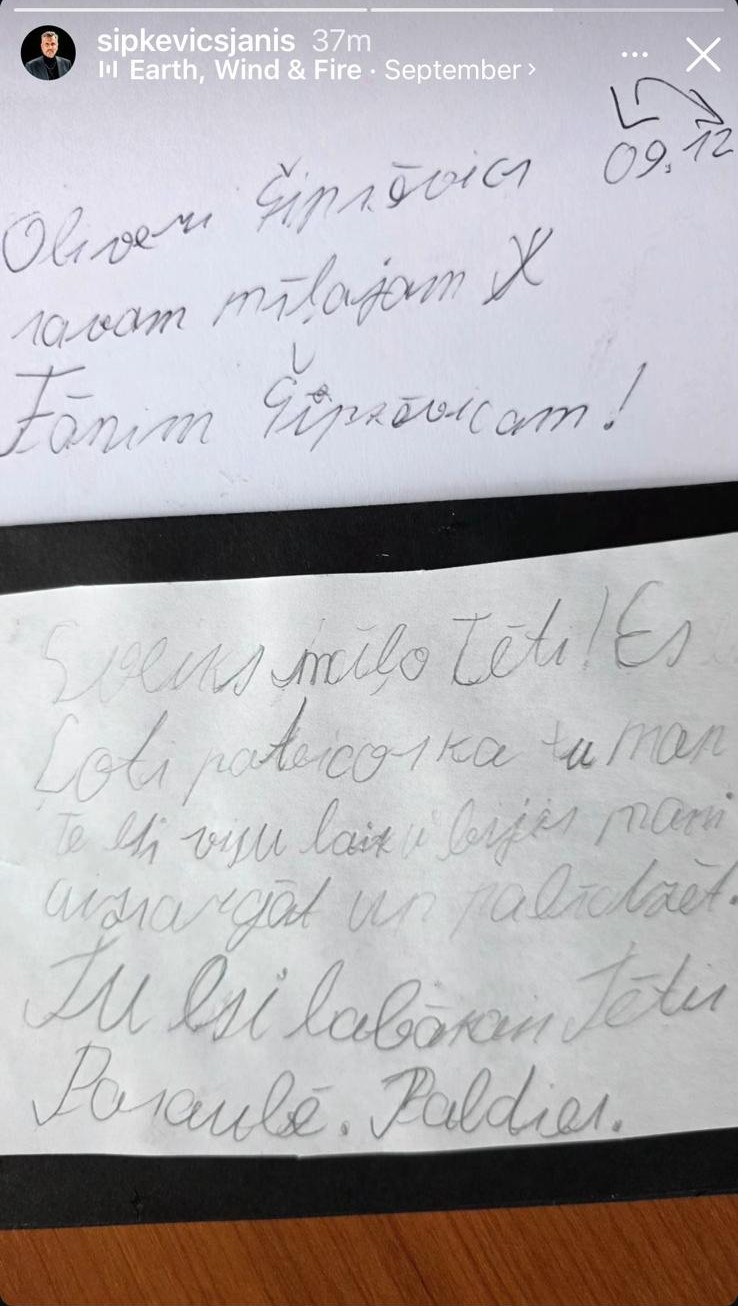 sipkevicsjanis 37m
Earth, Wind & Fire · September ›
09.12
Olivers Šipkēvics
savam mīļajam
Jānim Šipkēvicam!
Sveiks mīļo Tēti! Es
Ļoti pateicos ka tu man
Te esi visu laiku bijis mani
aizsargāt un palīdzēt.
Tu esi labākais Tētis
Pasaulē. Paldies.